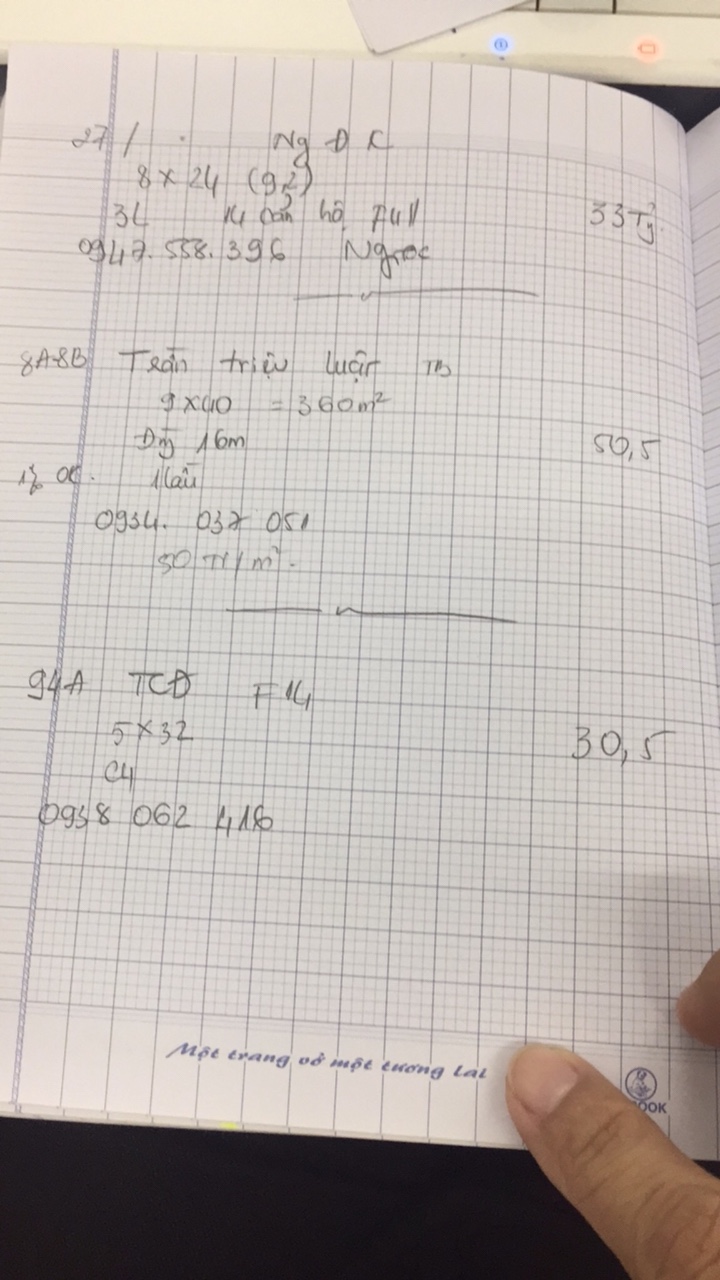 27/ . Ng Đ K
8 x 24 (9,2)
3L 14 căn hộ Full 33 Tỷ
0947.558.396 Ngọc
8A-8B Trần triệu luật TB
9 x 40 = 360m²
Đg 16m 50,5
1% 1 lầu
0934. 037 051
50 Tr/m².
94A TCĐ F14
5 x 32 30,5
C4
0938 062 416
Một trang vở một tương lai